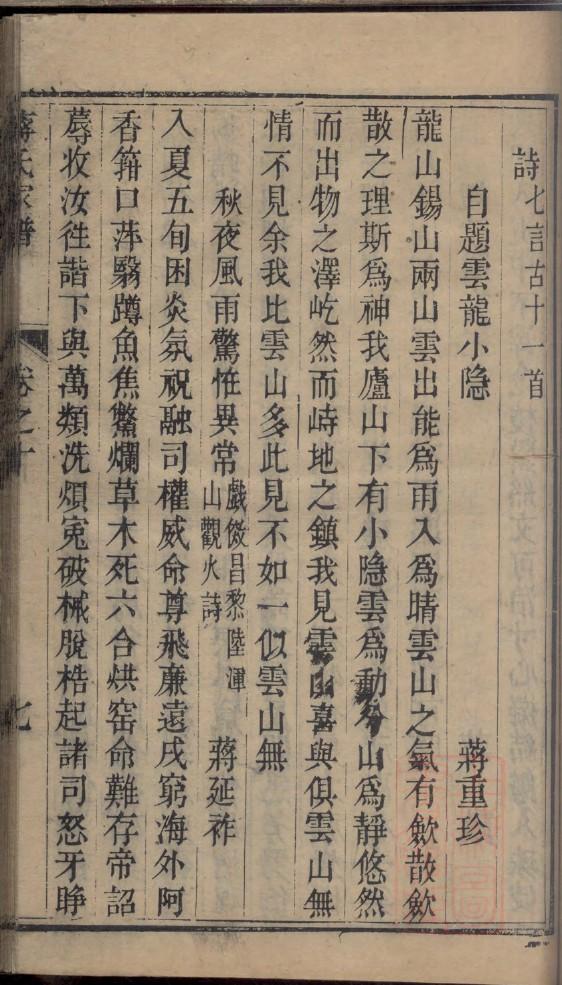 詩七言古十一首
自題雲龍小隐 蔣重珍
龍山錫山兩山雲出能爲雨入爲晴雲山之氣有歛散歛
散之理斯爲神我廬山下有小隐雲爲動兮山爲靜悠然
而出物之澤屹然而峙地之鎮我見雲山喜與俱雲山無
情不見余我比雲山多此見不如一似雲山無
秋夜風雨驚恠異常戲倣昌黎陸渾山觀火詩 蔣延祚
入夏五旬困炎氛祝融司權威命尊飛廉遠戍窮海外阿
香箝口萍翳蹲魚焦鱉爛草木死六合烘窑命難存帝詔
蓐收汝徃諧下與萬類洗煩寃破械脫梏起諸司怒牙睁
蔣氏家譜 卷之十 七